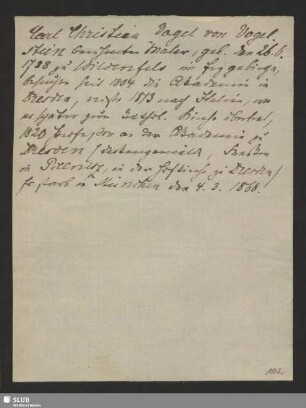 Karl Christian Vogel von Vogel-
stein berühmter Maler, geb. den 26. 6.
1788 zu Wildenfels im Erzgebirge,
besuchte seit 1804 die Akademie in
Dresden, 1813 nach Italien, wo
er später zum kathol. Ritus übertrat,
1820 Professor an der Akademie zu
Dresden (Deckengemälde, Fresken
in Pillnitz, in der Hofkirche zu Dresden)
Er starb in München den 4. 3. 1868.
102
SLUB